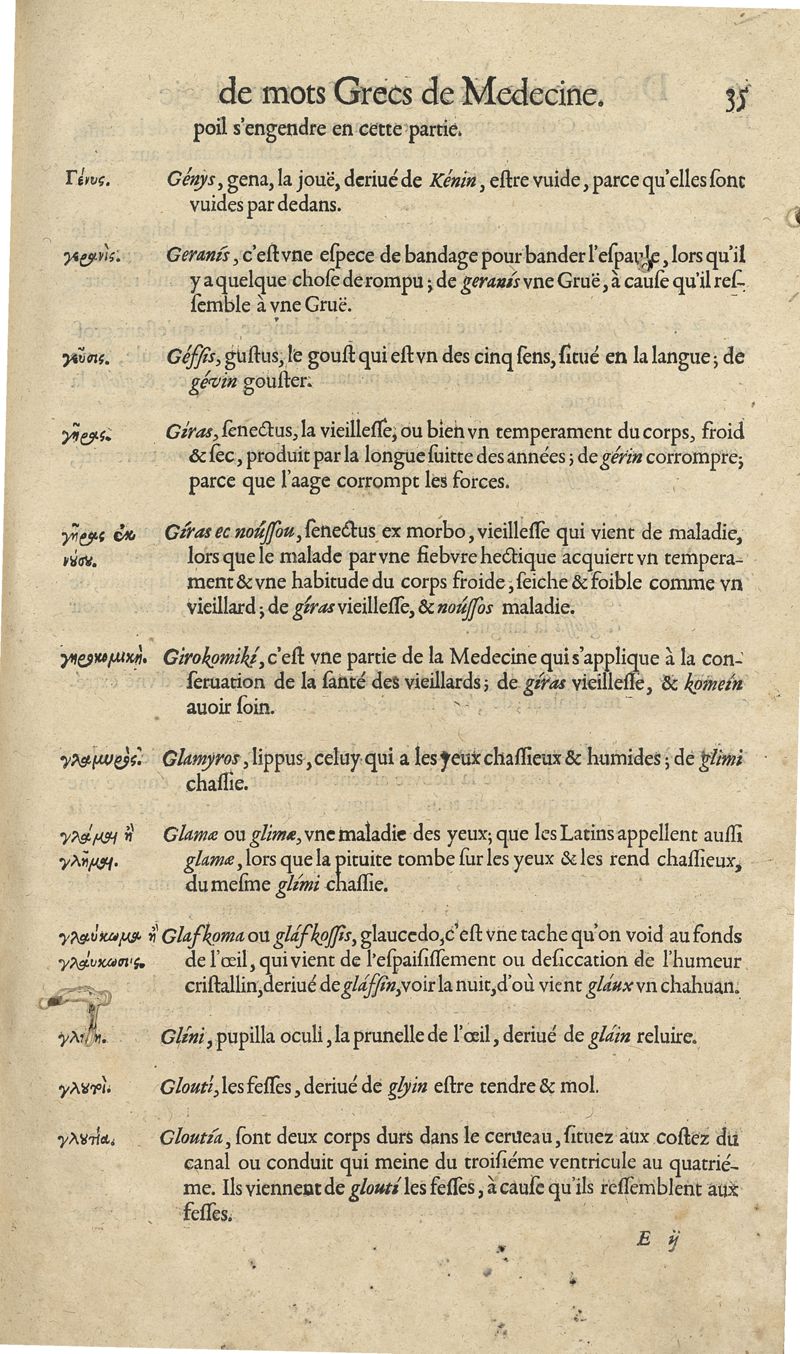 de mots Grecs de Medecine. 35
poil s'engendre en cette partie.
Γένυς. Génys, gena, la jouë, deriué de Kénin, eſtre vuide, parce qu'elles ſont
vuides par dedans.
γερανὶς. Geranís, c'eſt vne eſpece de bandage pour bander l'eſpaule, lors qu'il
y a quelque choſe de rompu; de geranís vne Gruë, à cauſe qu'il reſ-
ſemble à vne Gruë.
γεῦσις. Géſſis, guſtus, le gouſt qui eſt vn des cinq ſens, ſitué en la langue; de
gévin gouſter.
γῆρας. Gíras, ſenectus, la vieilleſſe, ou bien vn temperament du corps, froid
& ſec, produit par la longue ſuitte des années; de gérin corrompre;
parce que l'aage corrompt les forces.
γῆρας ἐκ Gíras ec noúſſou, ſenectus ex morbo, vieilleſſe qui vient de maladie,
νούσου. lors que le malade par vne fiebvre hectique acquiert vn tempera-
ment & vne habitude du corps froide, ſeiche & foible comme vn
vieillard; de gíras vieilleſſe, & noúſſos maladie.
γηροκομικὴ. Girokomikí, c'eſt vne partie de la Medecine qui s'applique à la con-
ſeruation de la ſanté des vieillards; de gíras vieilleſſe, & komeín
auoir ſoin.
γλαμυρὸς. Glamyros, lippus, celuy qui a les yeux chaſſieux & humides; de glimi
chaſſie.
γλάμαι ἢ Glamæ ou glimæ, vne maladie des yeux; que les Latins appellent auſſi
γλῆμαι. glamæ, lors que la pituite tombe ſur les yeux & les rend chaſſieux,
du meſme glími chaſſie.
γλαύκωμα ἢ Glafkoma ou gláfkoſſis, glaucedo, c'eſt vne tache qu'on void au fonds
γλαύκωσις. de l'œil, qui vient de l'eſpaiſiſſement ou deſiccation de l'humeur
criſtallin, deriué de gláſſin, voir la nuit, d'où vient gláux vn chahuan.
Glíni, pupilla oculi, la prunelle de l'œil, deriué de gláin reluire.
γλουτοὶ. Gloutí, les feſſes, deriué de glyin eſtre tendre & mol.
γλουτία. Gloutía, ſont deux corps durs dans le cerueau, ſituez aux coſtez du
canal ou conduit qui meine du troiſiéme ventricule au quatrié-
me. Ils viennent de gloutí les feſſes, à cauſe qu'ils reſſemblent aux
feſſes.
E ij